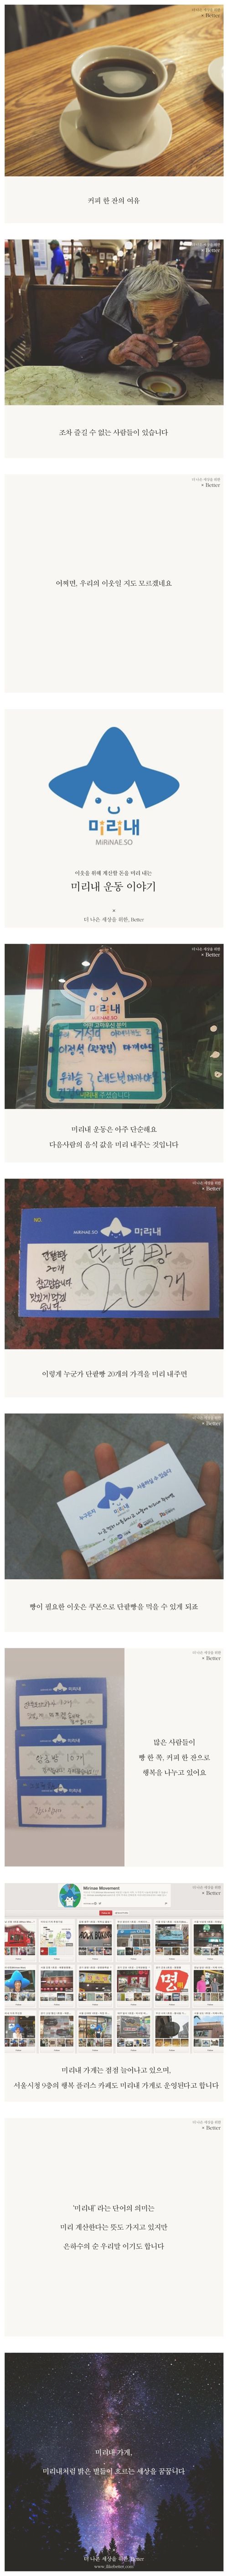 더 나은 세상을 위한
+ Better
커피 한 잔의 여유
더 나은 세상을 위한
+ Better
조차 즐길 수 없는 사람들이 있습니다
더 나은 세상을 위한
+ Better
어쩌면, 우리의 이웃일 지도 모르겠네요
미리내
MiRiNAE.SO
이웃을 위해 계산할 돈을 미리 내는
미리내 운동 이야기
×
더 나은 세상을 위한, Better
더 나은 세상을 위한
+ Better
미리내
MIRINAE.SO
미리내 주셨습니다
미리내 운동은 아주 단순해요
다음사람의 음식 값을 미리 내주는 것입니다
더 나은 세상을 위한
+ Better
NO.
MIRINAE.SO
미리내
단팥빵
20개
단팥빵
20개
이렇게 누군가 단팥빵 20개의 가격을 미리 내주면
더 나은 세상을 위한
+ Better
누구든지
사용하실 수 있습니다
빵이 필요한 이웃은 쿠폰으로 단팥빵을 먹을 수 있게 되죠
더 나은 세상을 위한
+ Better
미리내
미리내
미리내
많은 사람들이
빵 한 쪽, 커피 한 잔으로
행복을 나누고 있어요
더 나은 세상을 위한
+ Better
Mirinae Movement
미리내 가게는 점점 늘어나고 있으며,
서울시청 9층의 행복 플러스 카페도 미리내 가게로 운영된다고 합니다
더 나은 세상을 위한
+ Better
'미리내' 라는 단어의 의미는
미리 계산한다는 뜻도 가지고 있지만
은하수의 순 우리말 이기도 합니다
미리내 가게,
미리내처럼 밝은 별들이 흐르는 세상을 꿈꿉니다
더 나은 세상을 위한, Better